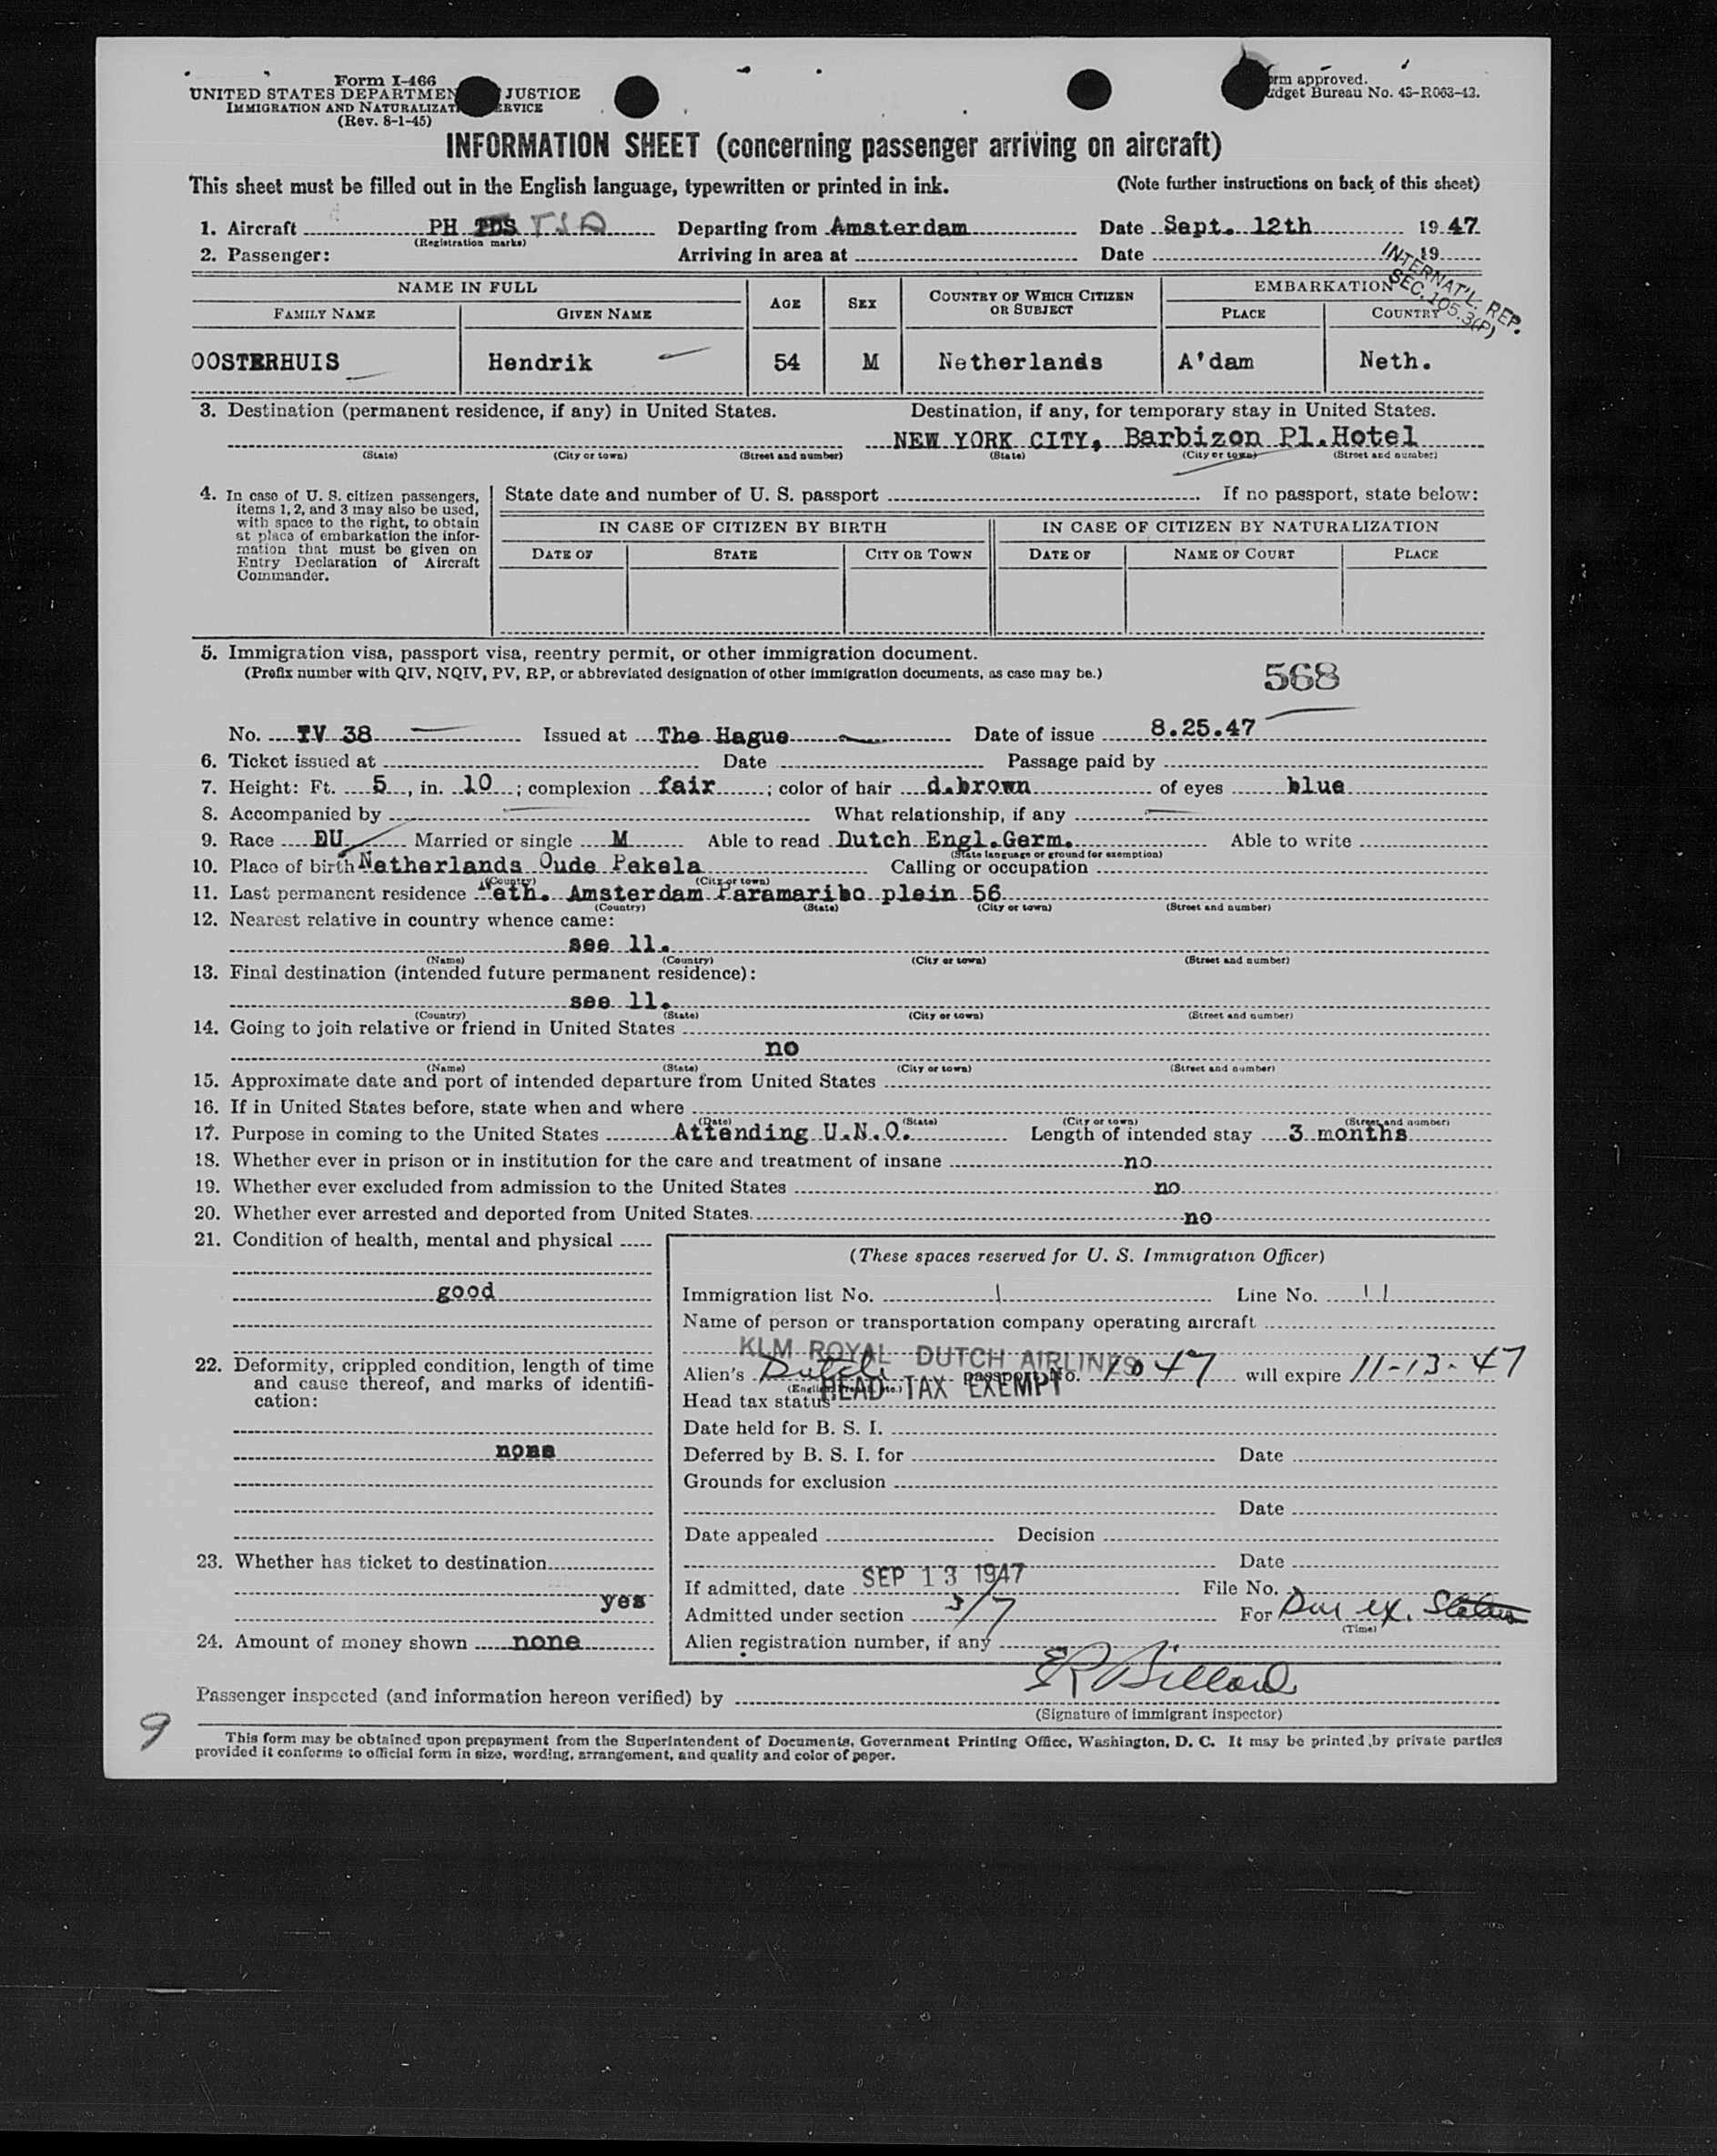 Form I-466
UNITED STATES DEPARTMEN JUSTICE
IMMIGRATION AND NATURALIZAT ERVICE
(Rev. 8-1-45)
orm approved.
udget Bureau No. 43-R063-42.
INFORMATION SHEET (concerning passenger arriving on aircraft)
This sheet must be filled out in the English language, typewritten or printed in ink. (Note further instructions on back of this sheet)
1. Aircraft PH TDS Departing from Amsterdam Date Sept. 12th 19 47
(Registration marks)
2. Passenger: Arriving in area at Date 19
INTERNAT'L. REP.
SEC. 105.3(P)
NAME IN FULL AGE SEX COUNTRY OF WHICH CITIZEN OR SUBJECT EMBARKATION
FAMILY NAME GIVEN NAME PLACE COUNTRY
OOSTERHUIS Hendrik 54 M Netherlands A'dam Neth.
3. Destination (permanent residence, if any) in United States. Destination, if any, for temporary stay in United States.
NEW YORK CITY, Barbizon Pl.Hotel
(State) (City or town) (Street and number) (State) (City or town) (Street and number)
4. In case of U. S. citizen passengers,
items 1, 2, and 3 may also be used,
with space to the right, to obtain
at place of embarkation the infor-
mation that must be given on
Entry Declaration of Aircraft
Commander.
State date and number of U. S. passport If no passport, state below:
IN CASE OF CITIZEN BY BIRTH IN CASE OF CITIZEN BY NATURALIZATION
DATE OF STATE CITY OR TOWN DATE OF NAME OF COURT PLACE
5. Immigration visa, passport visa, reentry permit, or other immigration document.
(Prefix number with QIV, NQIV, PV, RP, or abbreviated designation of other immigration documents, as case may be.)
568
No. TV 38 Issued at The Hague Date of issue 8.25.47
6. Ticket issued at Date Passage paid by
7. Height: Ft. 5, in. 10; complexion fair; color of hair d.brown of eyes blue
8. Accompanied by What relationship, if any
9. Race EU Married or single M Able to read Dutch Engl.Germ. Able to write
(State language or ground for exemption)
10. Place of birth Netherlands Oude Pekela Calling or occupation
(Country) (City or town)
11. Last permanent residence Neth. Amsterdam Paramaribo plein 56
(Country) (State) (City or town) (Street and number)
12. Nearest relative in country whence came:
see 11.
(Name) (Country) (City or town) (Street and number)
13. Final destination (intended future permanent residence):
see 11.
(Country) (State) (City or town) (Street and number)
14. Going to join relative or friend in United States
no
(Name) (State) (City or town) (Street and number)
15. Approximate date and port of intended departure from United States
16. If in United States before, state when and where
(Date) (State) (City or town) (Street and number)
17. Purpose in coming to the United States Attending U.N.O. Length of intended stay 3 months
18. Whether ever in prison or in institution for the care and treatment of insane no
19. Whether ever excluded from admission to the United States no
20. Whether ever arrested and deported from United States. no
21. Condition of health, mental and physical
good
22. Deformity, crippled condition, length of time
and cause thereof, and marks of identifi-
cation:
none
23. Whether has ticket to destination
yes
24. Amount of money shown none
(These spaces reserved for U. S. Immigration Officer)
Immigration list No. 1 Line No. 11
Name of person or transportation company operating aircraft
KLM ROYAL DUTCH AIRLINES
Alien's Dutch passport No. 1047 will expire 11-13-47
(English, French, etc.)
HEAD TAX EXEMPT
Head tax status
Date held for B. S. I.
Deferred by B. S. I. for Date
Grounds for exclusion
Date
Date appealed Decision
Date
If admitted, date SEP 13 1947 File No.
Admitted under section 3/7 For Dur ex. Status
(Time)
Alien registration number, if any
Passenger inspected (and information hereon verified) by ER Billard
(Signature of immigrant inspector)
9
This form may be obtained upon prepayment from the Superintendent of Documents, Government Printing Office, Washington, D. C. It may be printed by private parties
provided it conforms to official form in size, wording, arrangement, and quality and color of paper.